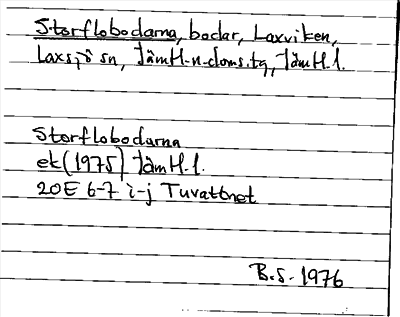 Storflobodarna, bodar, Laxviken,
Laxsjö sn, Jämtl-n-doms.tg, Jämtl.l.
Storflobodarna
ek (1975) Jämtl.l.
20E 6-7 i-j Tuvattnet
B.S. 1976